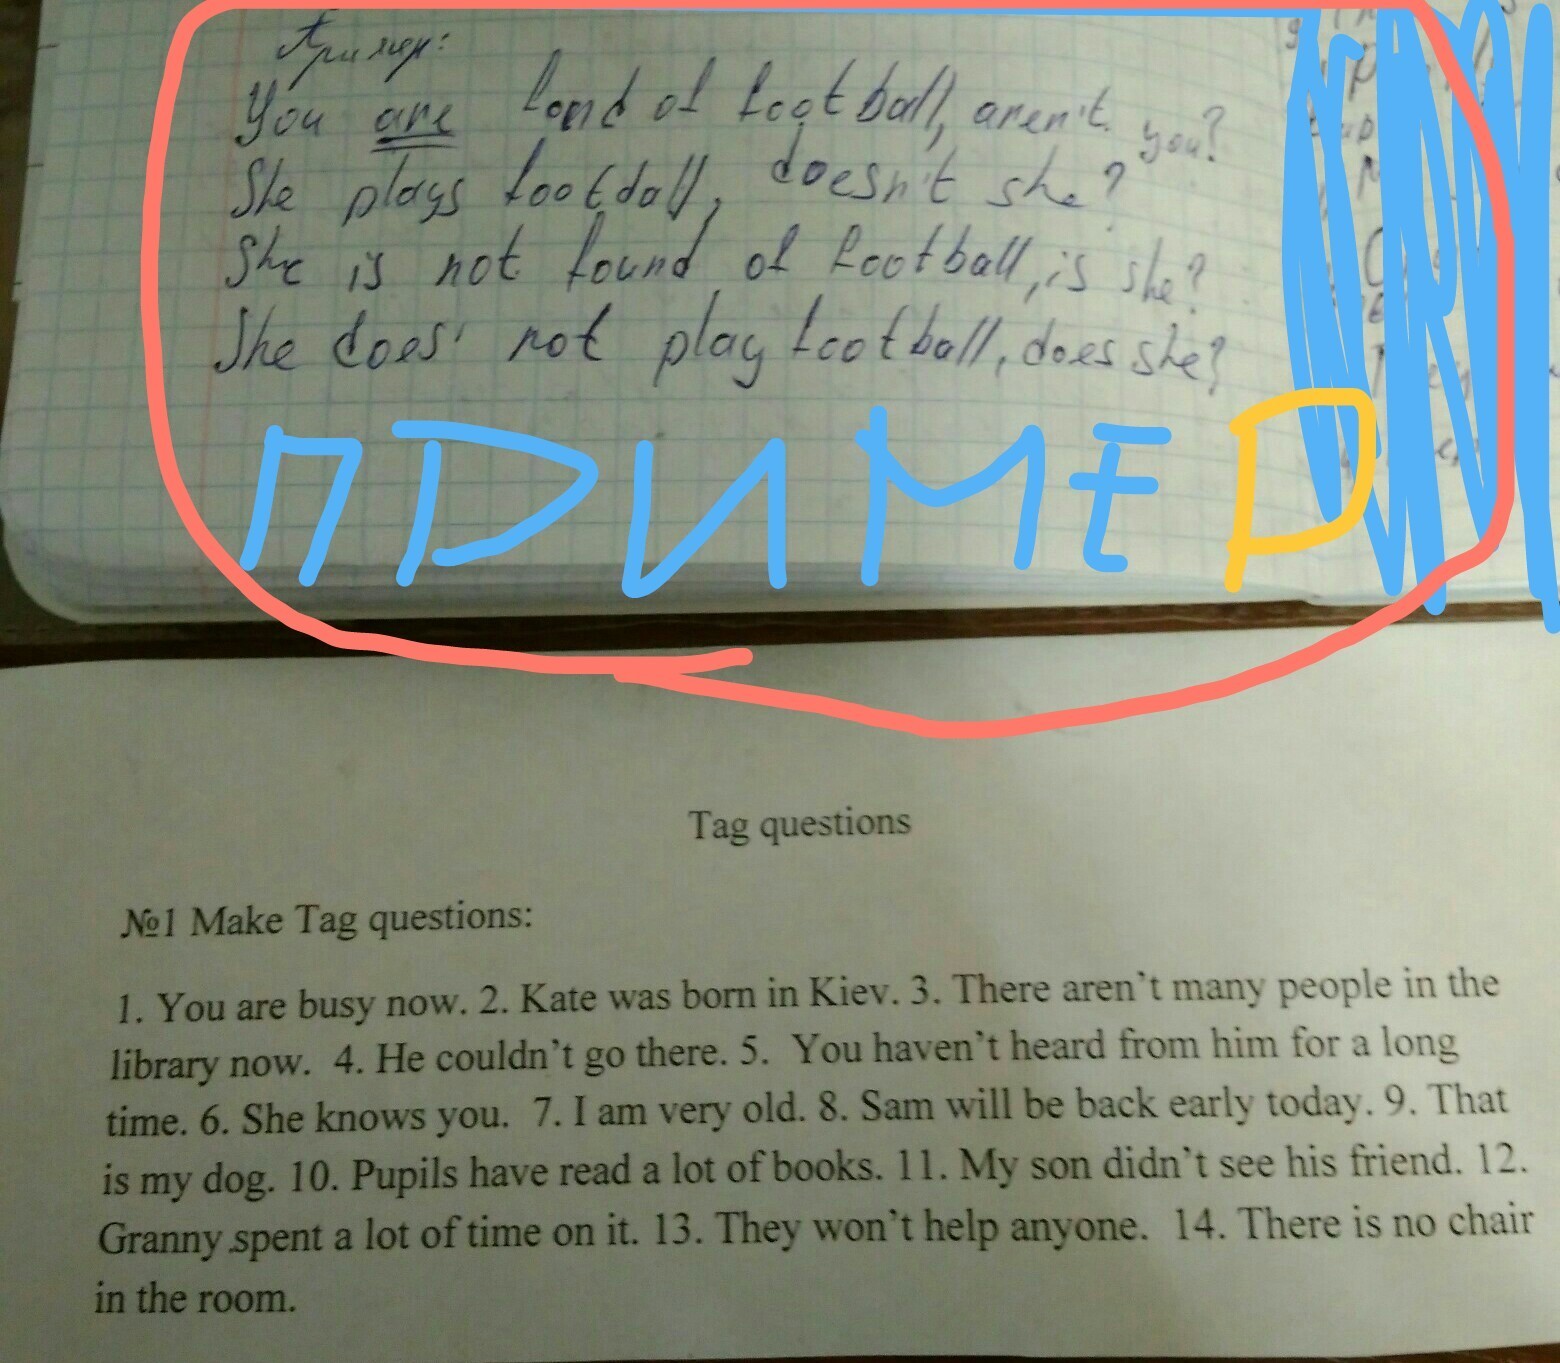 Пример:
You are fond of football, aren't you?
She plays football, doesn't she?
She is not found of football, is she?
She does not play football, does she?
ПРИМЕР
Tag questions
№1 Make Tag questions:
1. You are busy now. 2. Kate was born in Kiev. 3. There aren't many people in the
library now. 4. He couldn't go there. 5. You haven't heard from him for a long
time. 6. She knows you. 7. I am very old. 8. Sam will be back early today. 9. That
is my dog. 10. Pupils have read a lot of books. 11. My son didn't see his friend. 12.
Granny spent a lot of time on it. 13. They won't help anyone. 14. There is no chair
in the room.